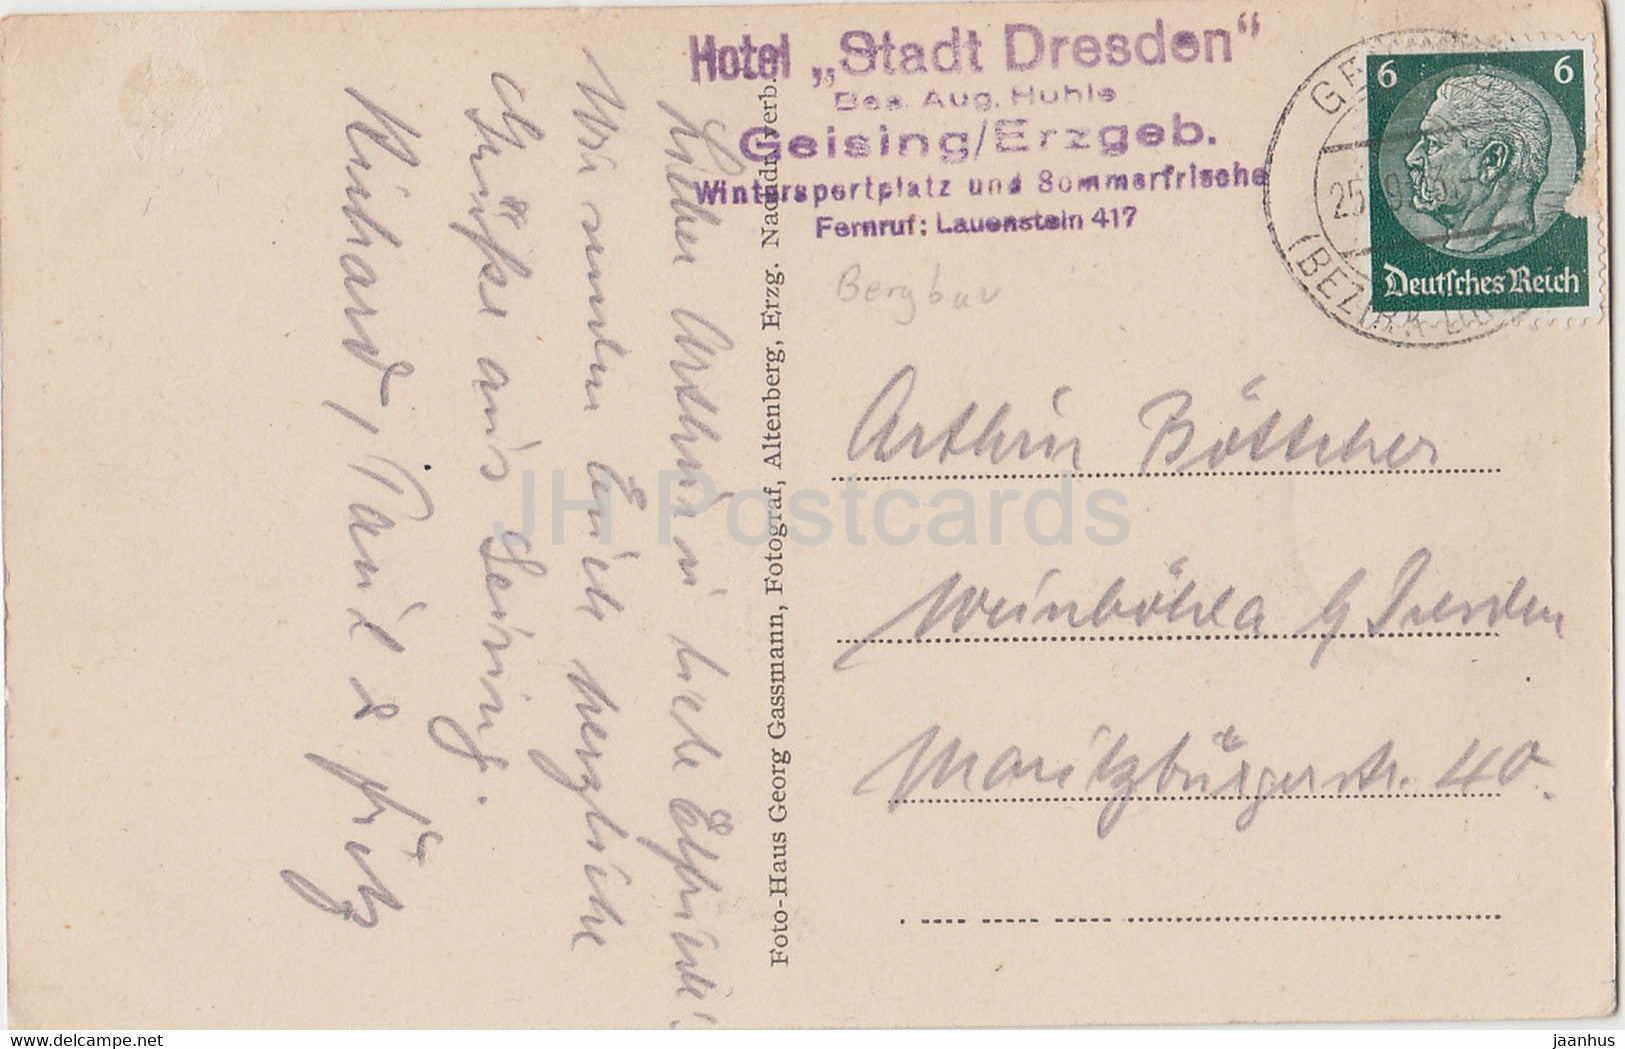 Hotel „Stadt Dresden“
Bes. Aug. Hühle
Geising/Erzgeb.
Wintersportplatz und Sommerfrische
Fernruf: Lauenstein 417
6 6
Deutsches Reich
25. 9.
(BEZIRK
Bergbau
Arthur Böttcher
Weinböhla b/ Dresden
Moritzburgerstr. 40.
Foto-Haus Georg Gassmann, Fotograf, Altenberg, Erzg. Nachdr. verb.
Lieber Arthur u liebe Elfriede!
Wir senden Euch herzliche
Grüße aus Geising.
Richard, Paul & Fritz
JH Postcards
www.delcampe.net
jaanhus